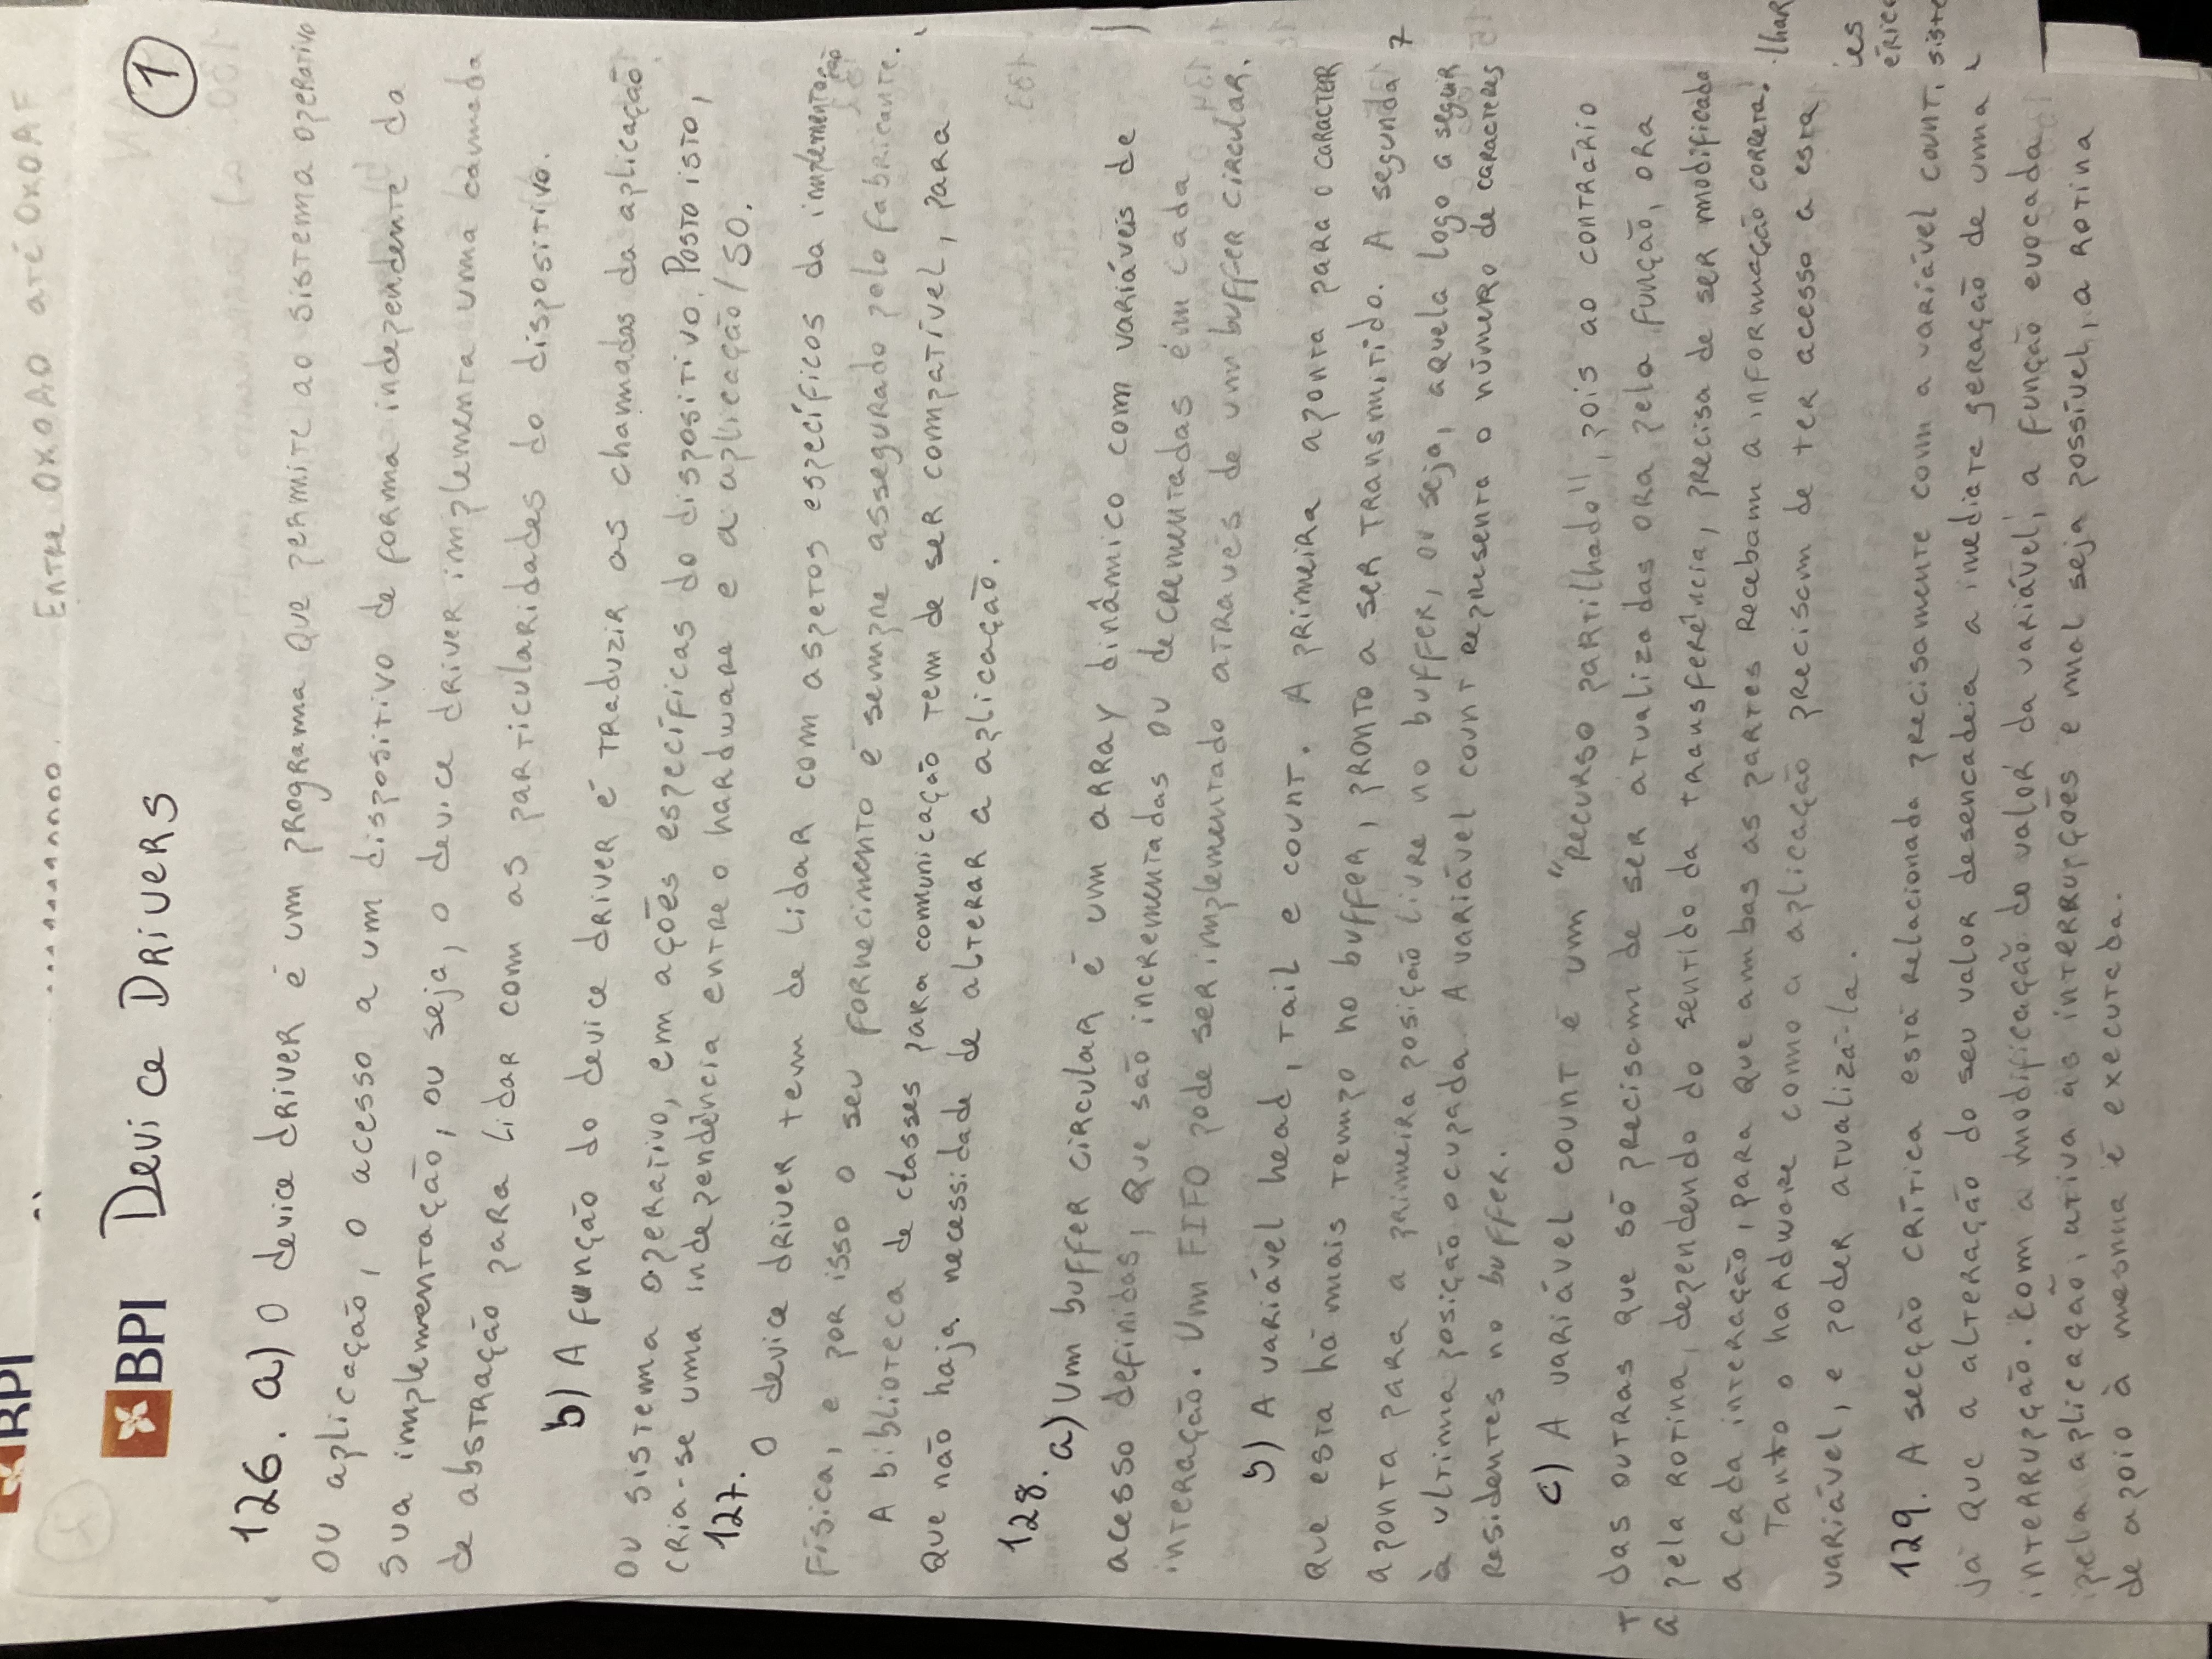 BPI
Entre 0x0A0 até 0x0AF
BPI Device Drivers
1
126. a) O device driver é um programa que permite ao sistema operativo
ou aplicação, o acesso a um dispositivo de forma independente da
sua implementação, ou seja, o device driver implementa uma camada
de abstração para lidar com as particularidades do dispositivo.
b) A função do device driver é traduzir as chamadas da aplicação
ou sistema operativo, em ações específicas do dispositivo. Posto isto,
cria-se uma independência entre o hardware e a aplicação/SO.
127.
O device driver tem de lidar com aspetos específicos da implementação
física, e por isso o seu fornecimento é sempre assegurado pelo fabricante.
A biblioteca de classes para comunicação tem de ser compatível, para
que não haja necessidade de alterar a aplicação.
128.
a) Um buffer circular é um array dinâmico com variáveis de
acesso definidas, que são incrementadas ou decrementadas em cada
interação. Um FIFO pode ser implementado através de um buffer circular.
b) A variável head, tail e count. A primeira aponta para o caracter
que esta há mais tempo no buffer, pronto a ser transmitido. A segunda
aponta para a primeira posição livre no buffer, ou seja, aquela logo a seguir
à ultima posição ocupada. A variável count representa o número de caracteres
residentes no buffer.
c) A variável count é um "recurso partilhado", pois ao contrário
das outras que só precisam de ser atualizadas ora pela função, ora
pela rotina, dependendo do sentido da transferência, precisa de ser modificada
a cada interação, para que ambas as partes recebam a informação correta.
Tanto o hardware como a aplicação precisam de ter acesso a esta
variável, e poder atualizá-la.
129. A secção crítica está relacionada precisamente com a variável count,
já que a alteração do seu valor desencadeia a imediata geração de uma
interrupção. Com a modificação do valor da variável, a função evocada
pela aplicação, ativa as interrupções e mal seja possível, a rotina
de apoio à mesma é executada.